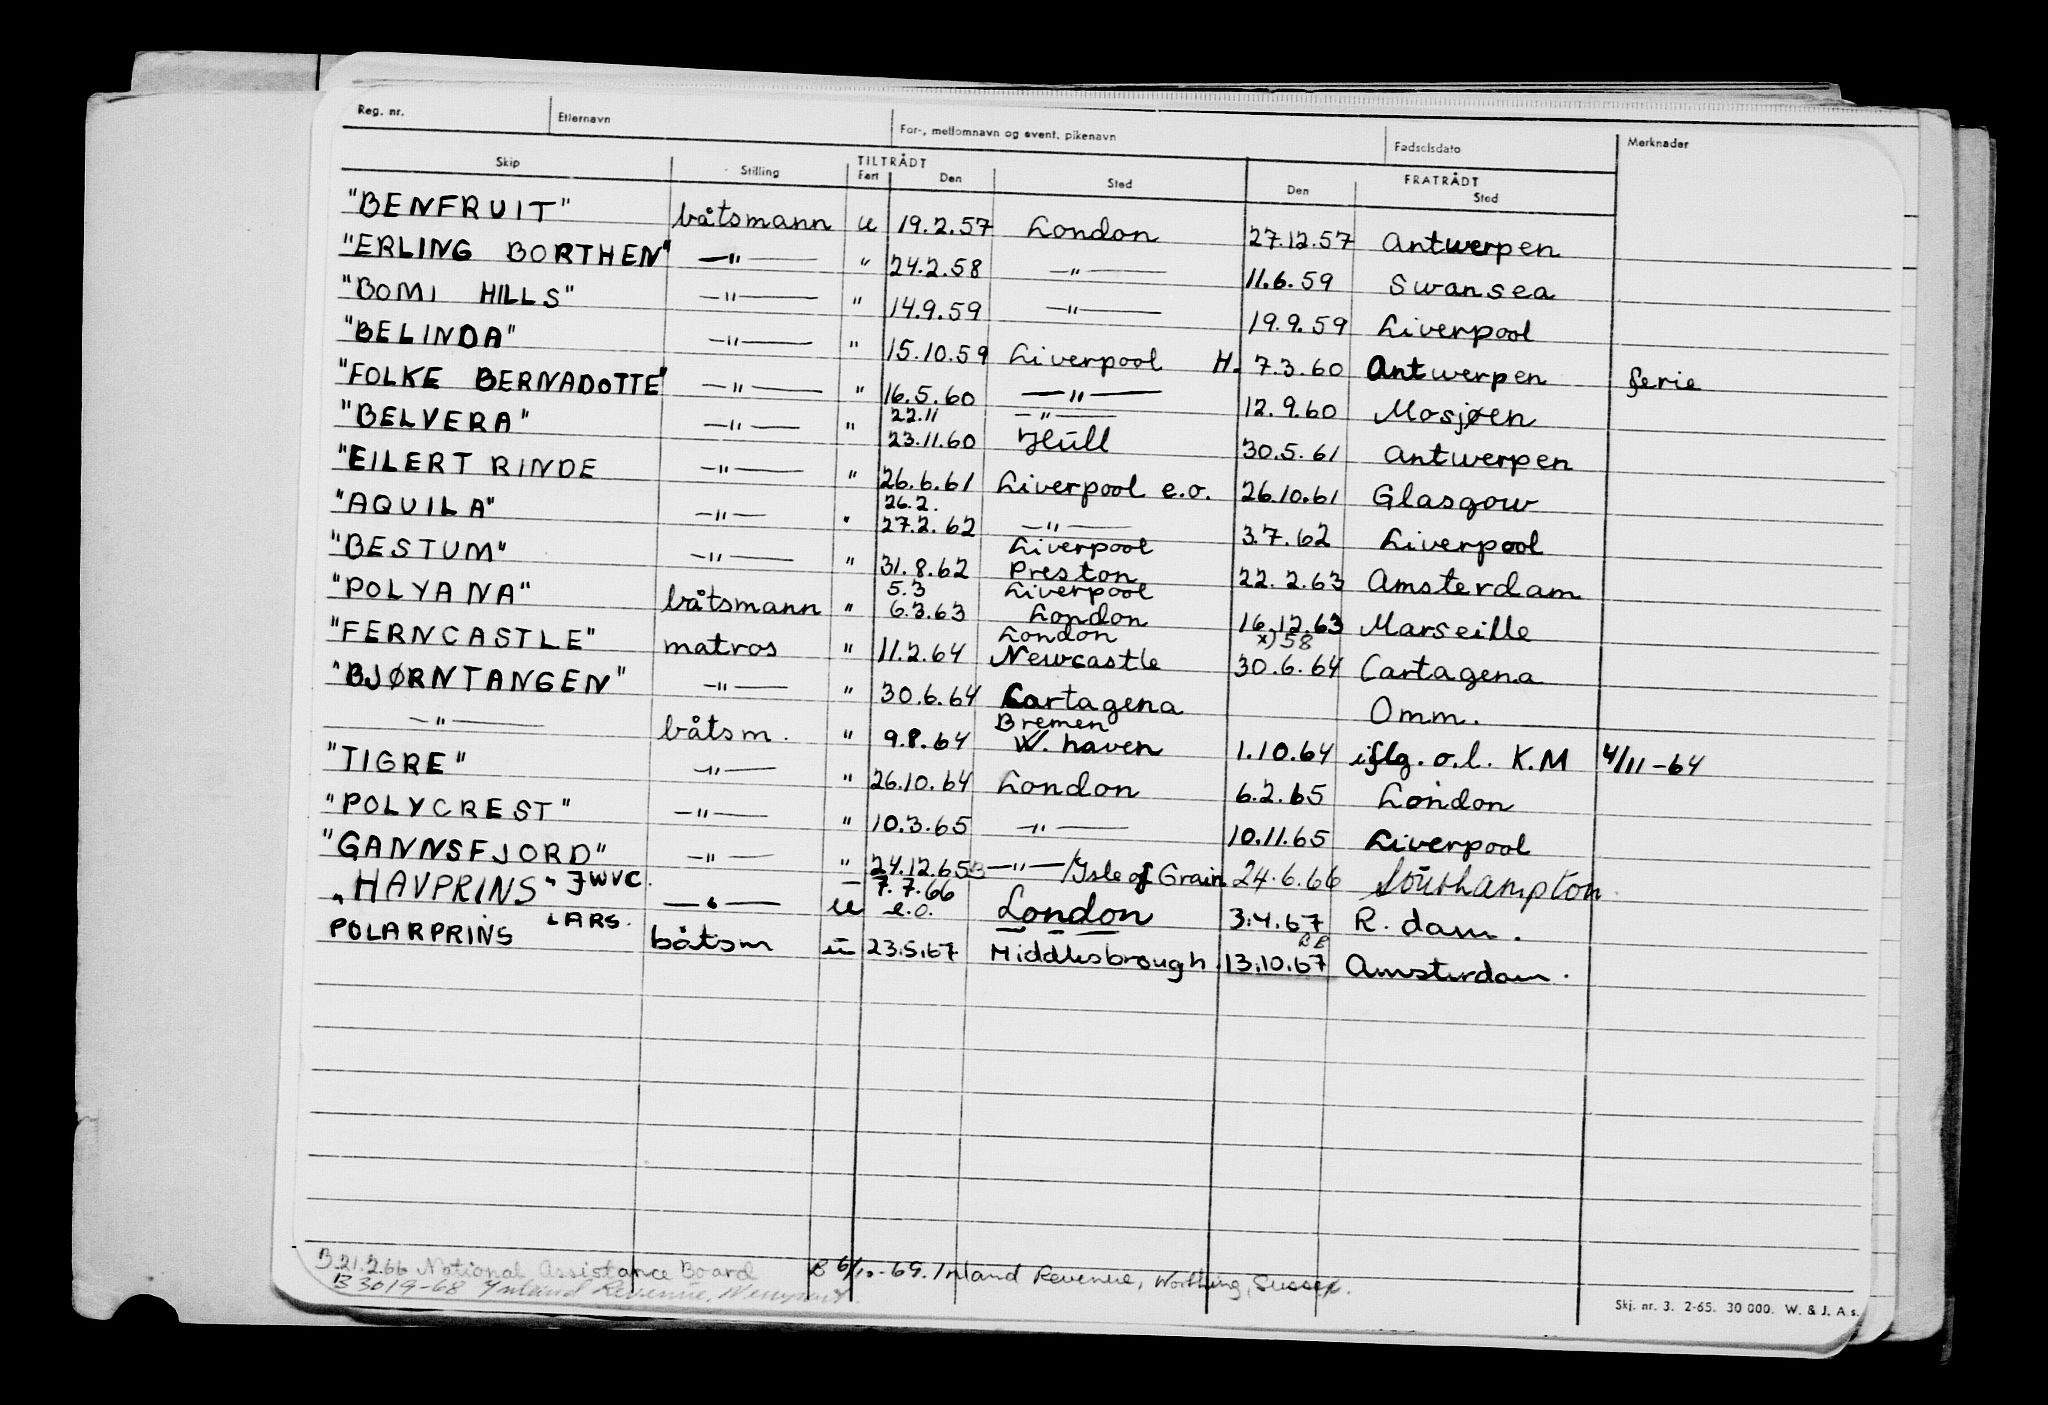 Reg. nr. Etternavn For-, mellomnavn og event. pikenavn Fødselsdato Merknader
Skip Stilling TILTRÅDT FRATRÅDT
Fart Den Sted Den Sted
"BENFRUIT" båtsmann u 19.2.57 London 27.12.57 Antwerpen
"ERLING BORTHEN" —"— " 24.2.58 —"— 11.6.59 Swansea
"BOMI HILLS" —"— " 14.9.59 —"— 19.9.59 Liverpool
"BELINDA" —"— " 15.10.59 Liverpool H. 7.3.60 Antwerpen ferie
"FOLKE BERNADOTTE" —"— " 16.5.60 —"— 12.9.60 Mosjøen
22.11 —"—
"BELVERA" —"— " 23.11.60 Hull 30.5.61 Antwerpen
"EILERT RINDE —"— " 26.6.61 Liverpool e.o. 26.10.61 Glasgow
26.2.
"AQUILA" —"— " 27.2.62 —"— 3.7.62 Liverpool
Liverpool
"BESTUM" —"— " 31.8.62 Preston 22.2.63 Amsterdam
5.3 Liverpool
"POLYANA" båtsmann " 6.3.63 London 16.12.63 Marseille
London x) 58
"FERNCASTLE" matros " 11.2.64 Newcastle 30.6.64 Cartagena
"BJØRNTANGEN" —"— " 30.6.64 Cartagena Omm.
Bremen
—"— båtsm. " 9.8.64 W. haven 1.10.64 iflg. o.l. K.M 4/11-64
"TIGRE" —"— " 26.10.64 London 6.2.65 London
"POLYCREST" —"— " 10.3.65 —"— 10.11.65 Liverpool
"GANNSFJORD" —"— " 24.12.65 —"—/Isle of Grain 24.6.66 Southampton
7.7.66
"HAVPRINS" JWVC. —"— u e.o. London 3.4.67 R. dam.
POLARPRINS LARS. båtsm u 23.5.67 Middlesbrough 13.10.67 Amsterdam.
B 21.2.66 National Assistance Board B 6/10-69. Inland Revenue, Worthing, Sussex.
B 3019-68 Inland Revenue, Newport.
Skj. nr. 3. 2-65. 30 000. W. & J. A.s.